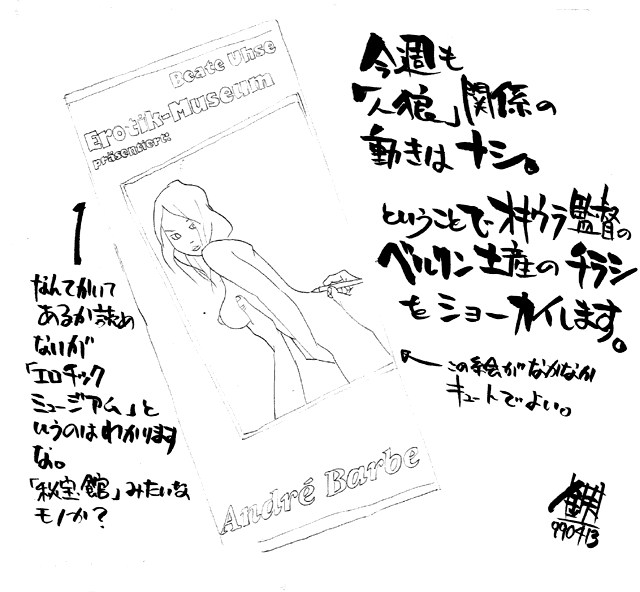 今週も
「人狼」関係の
動きはナシ。
ということでオキウラ監督の
ベルリン土産のチラシ
をショーカイします。
この絵がなかなか
キュートでよい。
Beate Uhse
Erotik-Museum
präsentiert:
André Barbe
なんてかいて
あるか読め
ないが
「エロチック
ミュージアム」と
いうのはわかります
な。
「秘宝館」みたいな
モノか?
990413